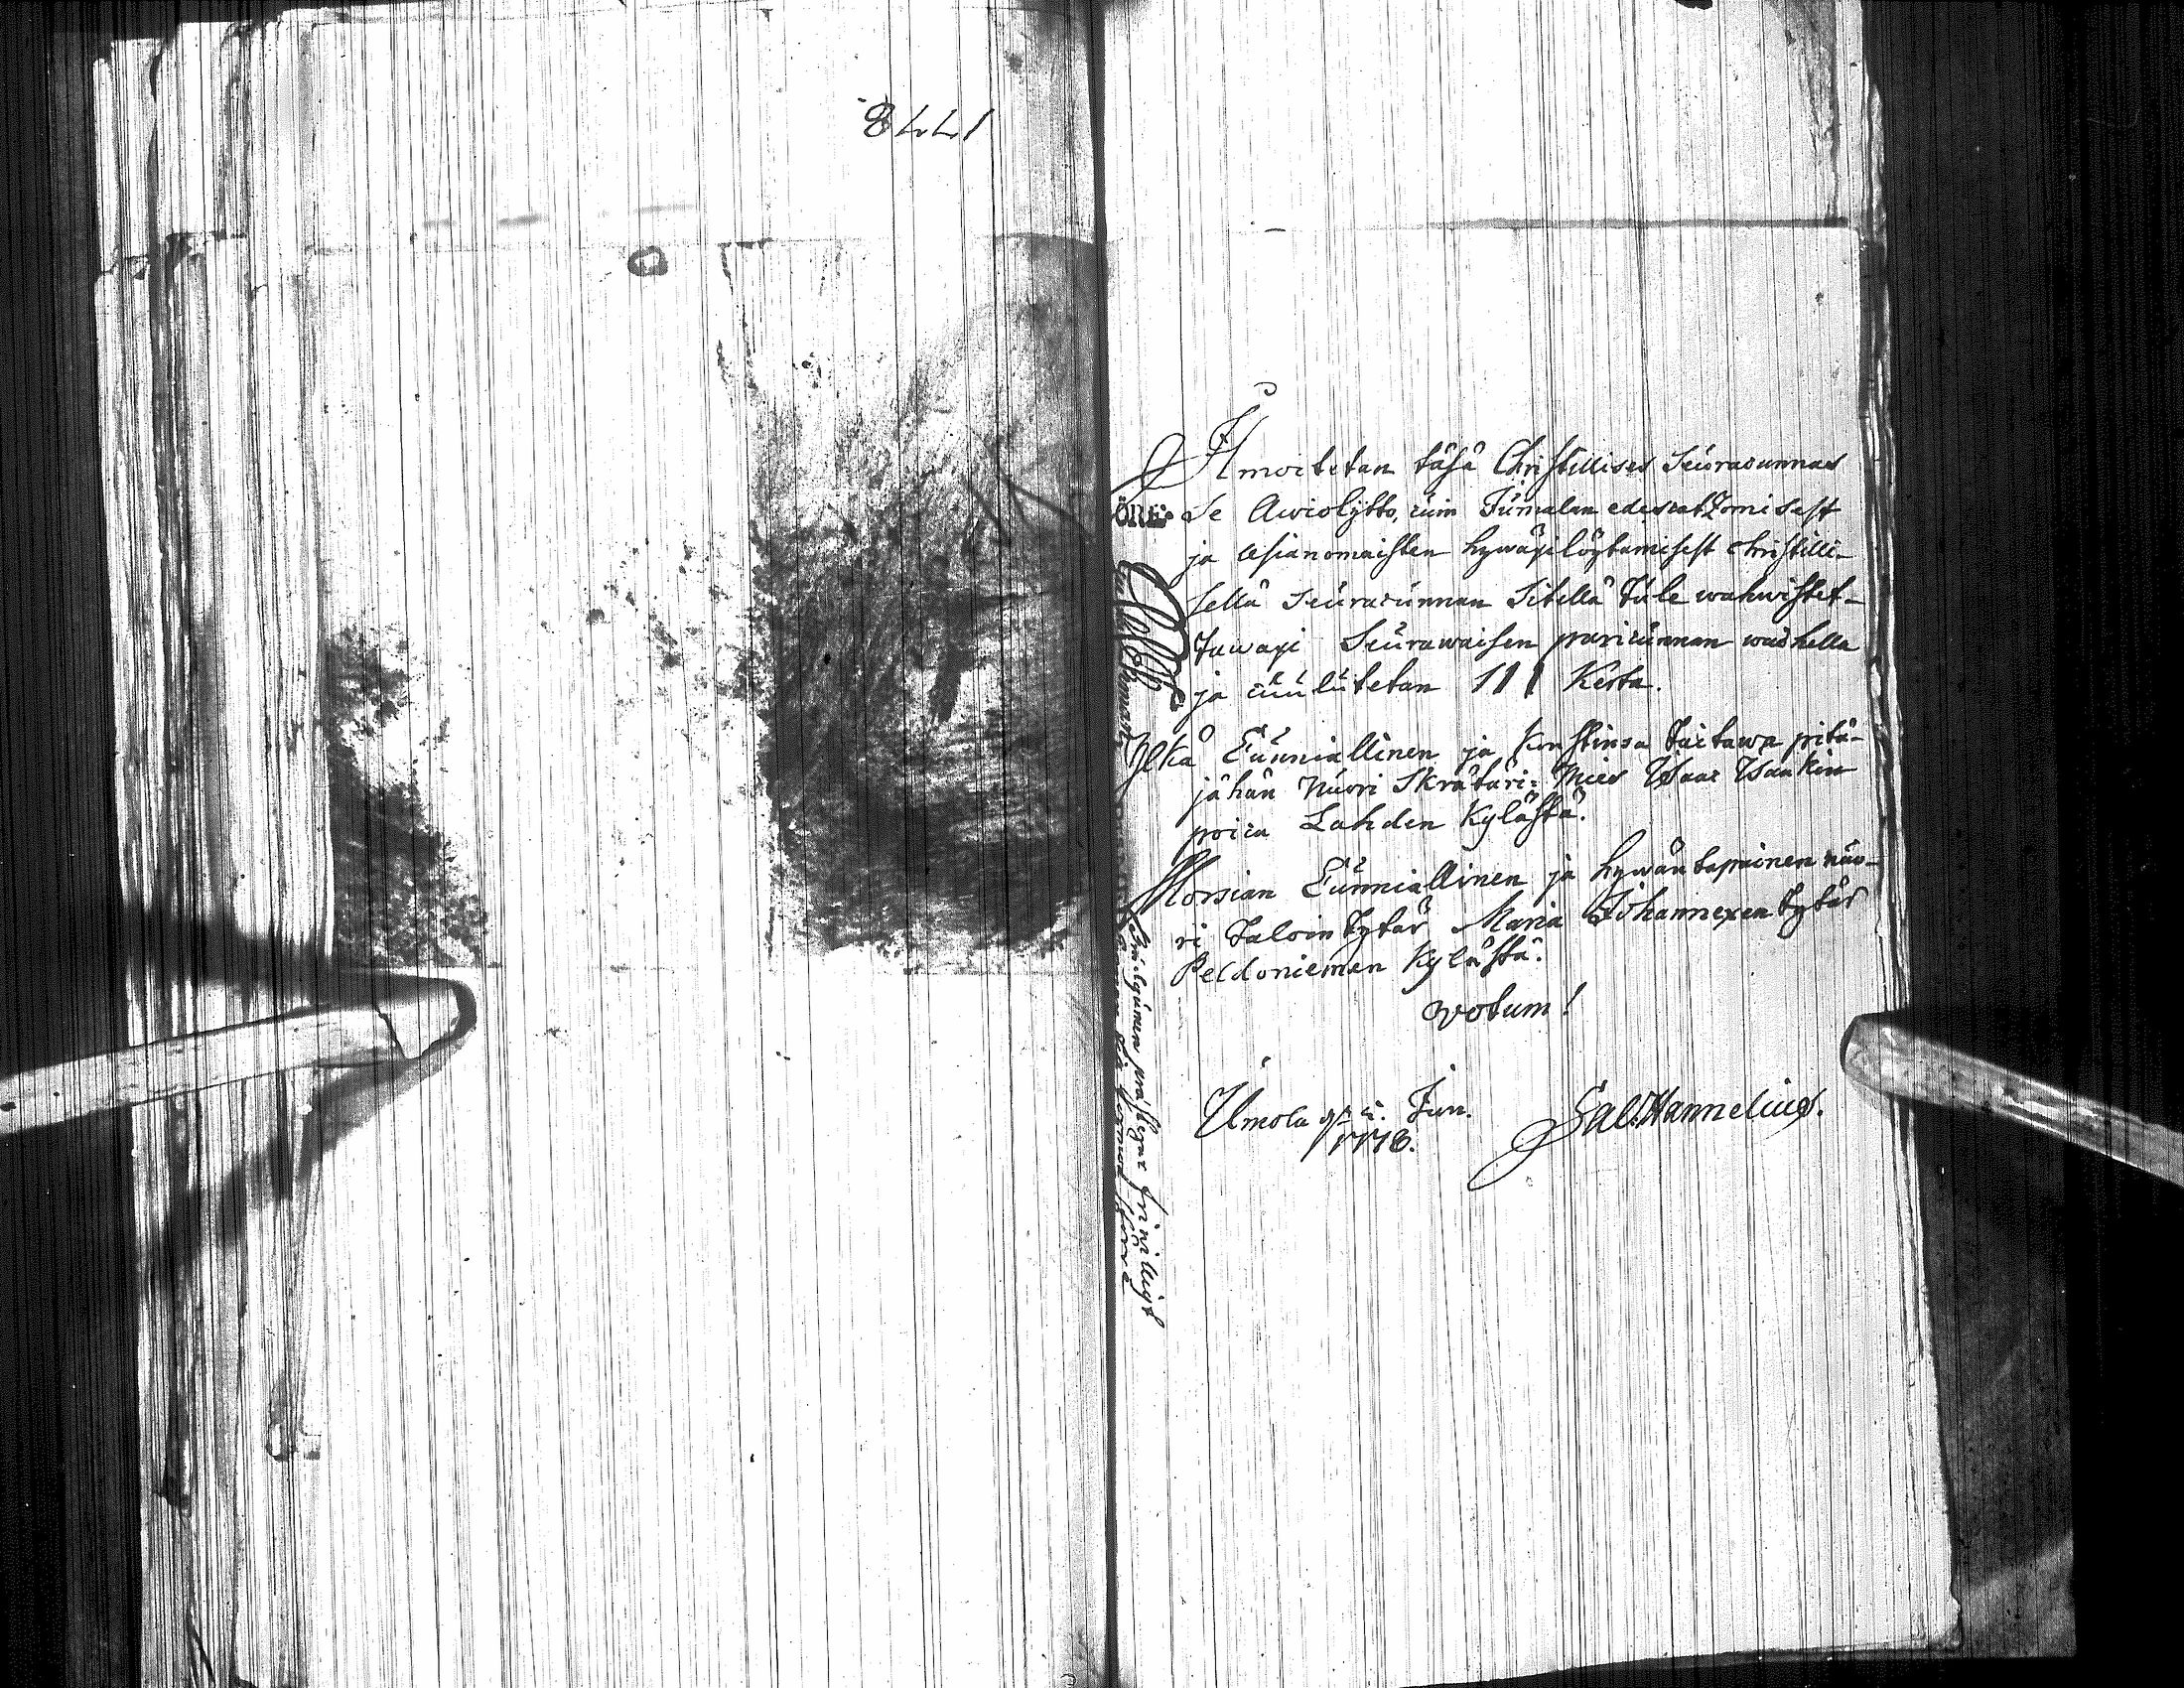 1778
Ilmoitetan täsä Christillises Seuracunnas
se Awioljtto, cuin Jumalan edescatzomisest
ÖRE.
ja asianomaisten hywäxi löytämisest christilli-
sellä Seuracunnan Sitellä tule wahwistet-
tuwaxi Seurawaisen paricunnan waihella
ja cuulutetan 111 Kerta.
Yljkä Cunniallinen ja Konstinsa taitawa pitä-
jähän Nuori Skrätäri-Mies Isaac Isaakin
poica Lahden Kylästä.
Morsian Cunniallinen ja hywäntapainen nuo-
ri Taloin tytär Maria Johannexen tytär
Peldoniemen Kylästä.
votum!
Jun.
1778.
Sal. Hannelius.
friwilligt